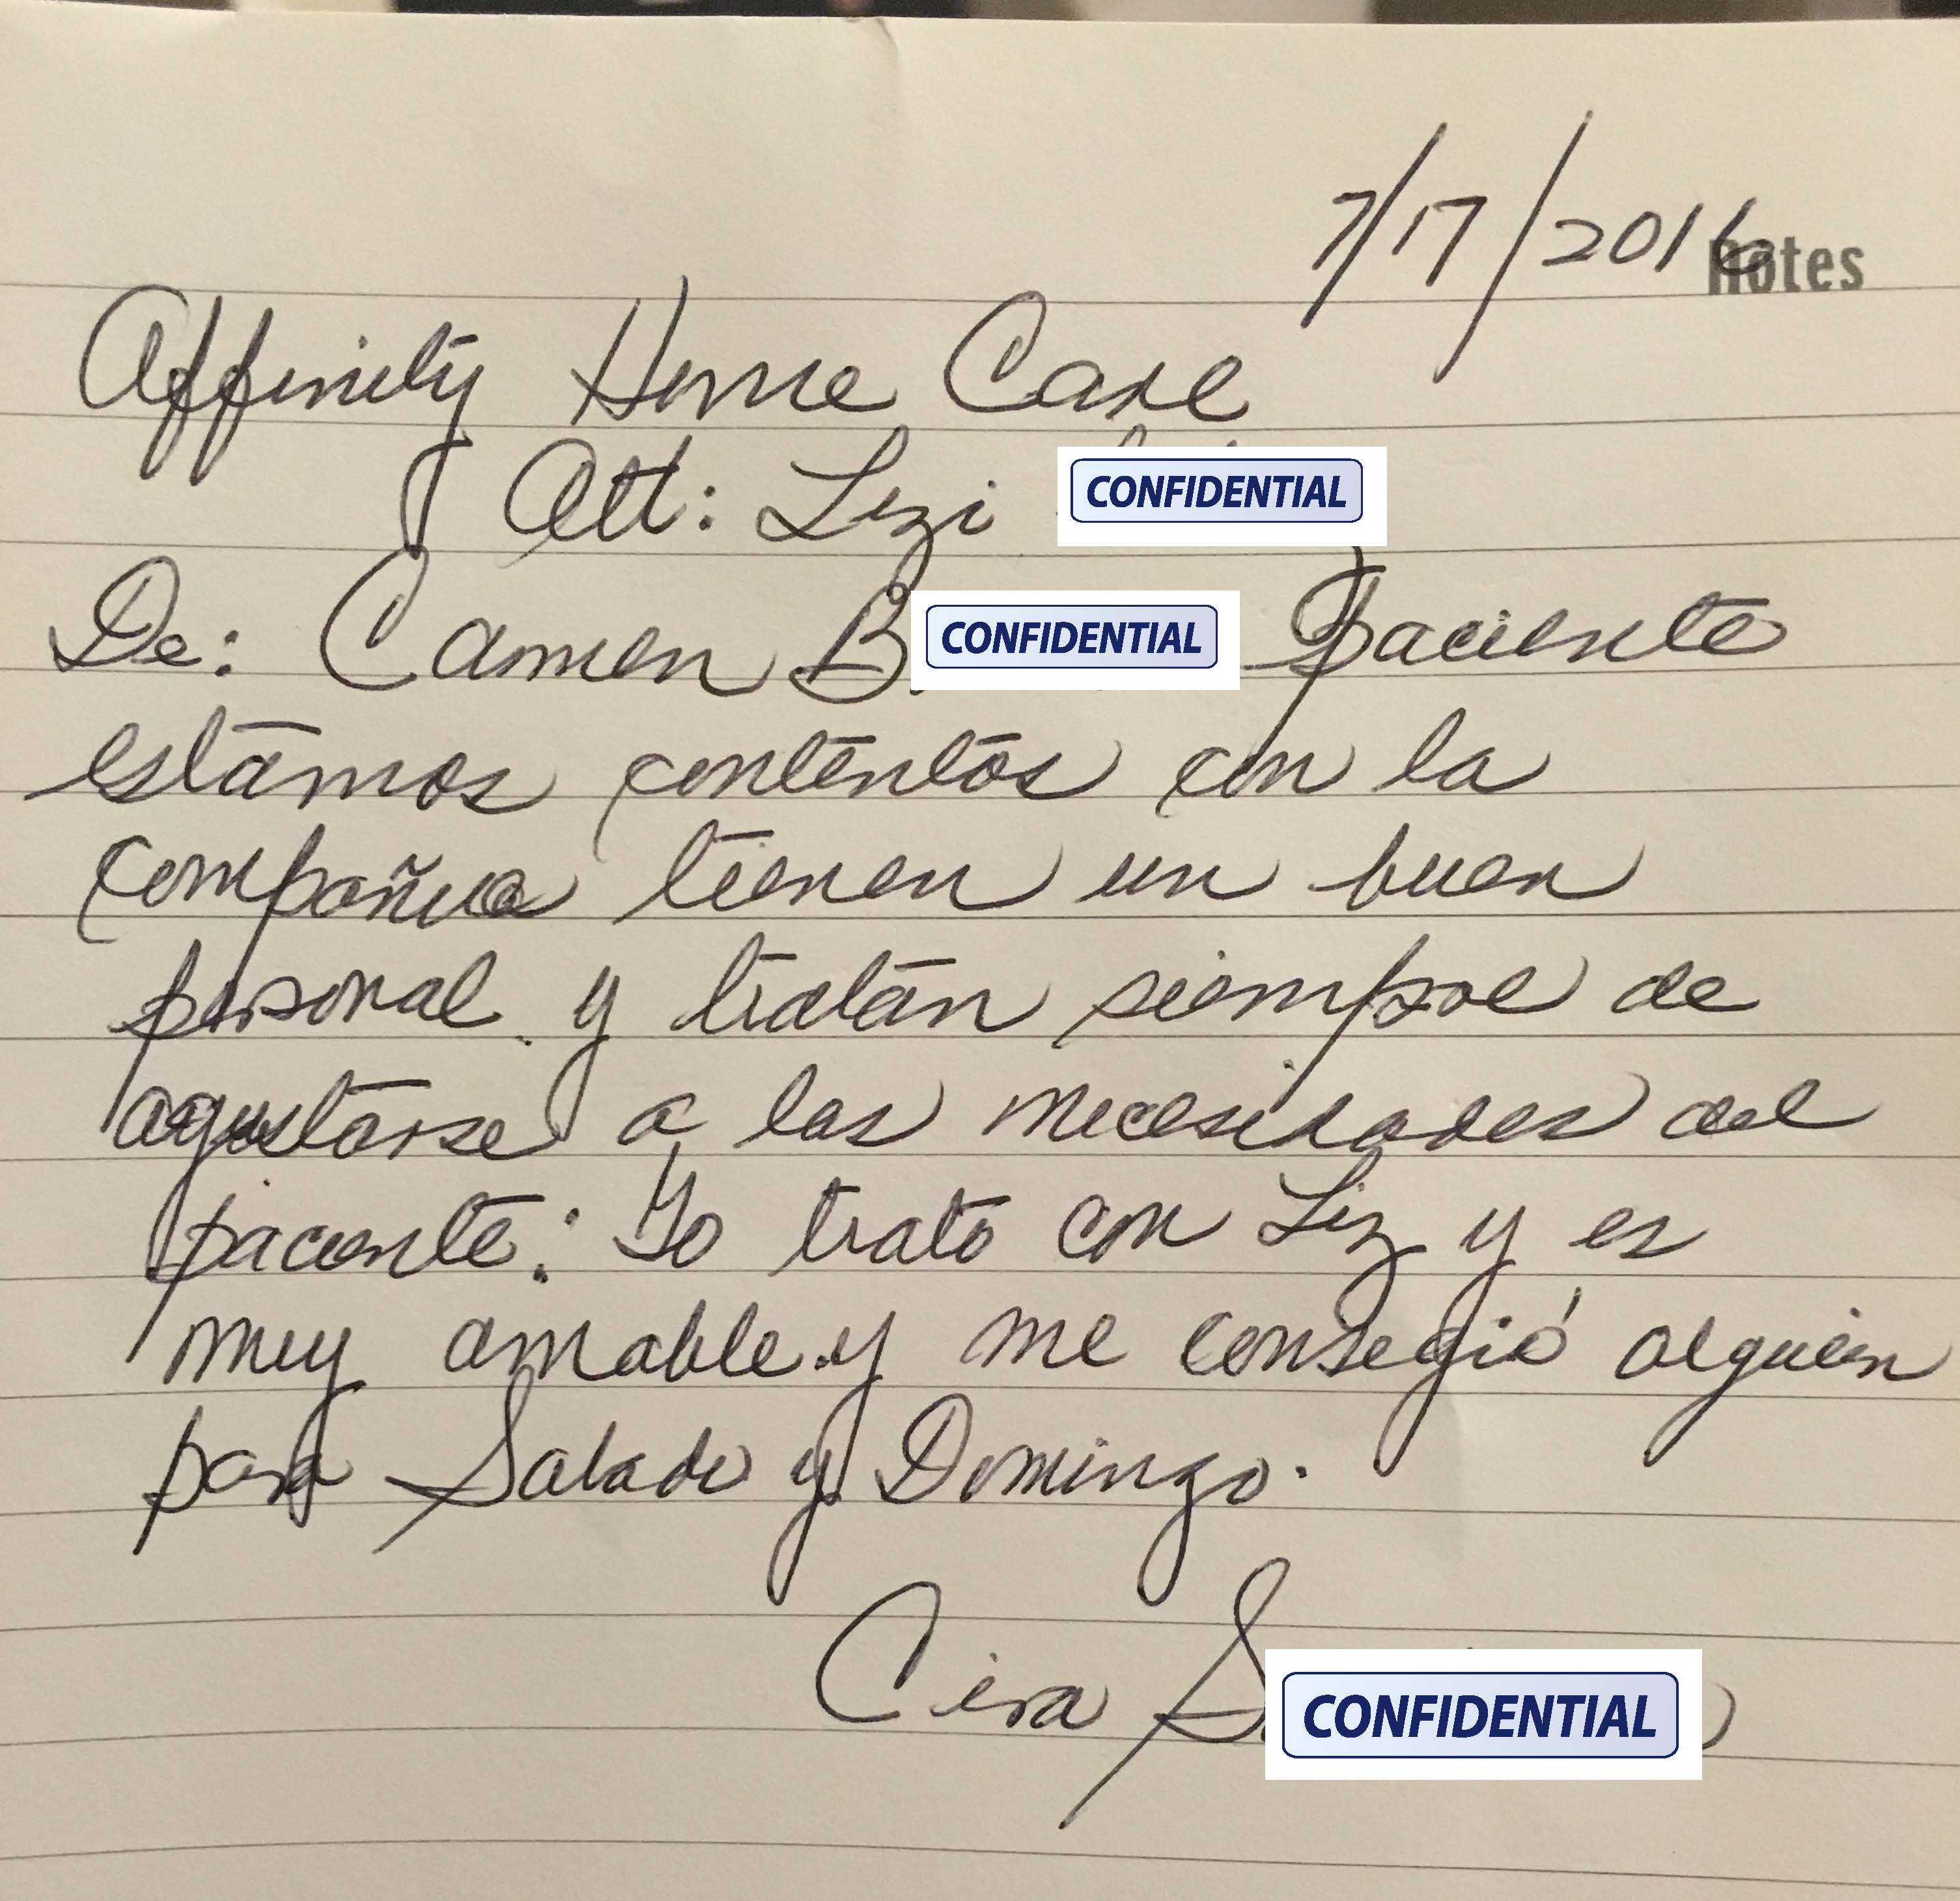 7/17/2016
Notes
Affinity Home Care
Att: Lizi CONFIDENTIAL
De: Carmen B CONFIDENTIAL Paciente
estamos contentos con la
compañia tienen un buen
personal y tratan siempre de
agustarse a las necesidades del
paciente: Yo trato con Liz y es
muy amable y me consegió alguien
para Sabado y Domingo.
Cira S CONFIDENTIAL